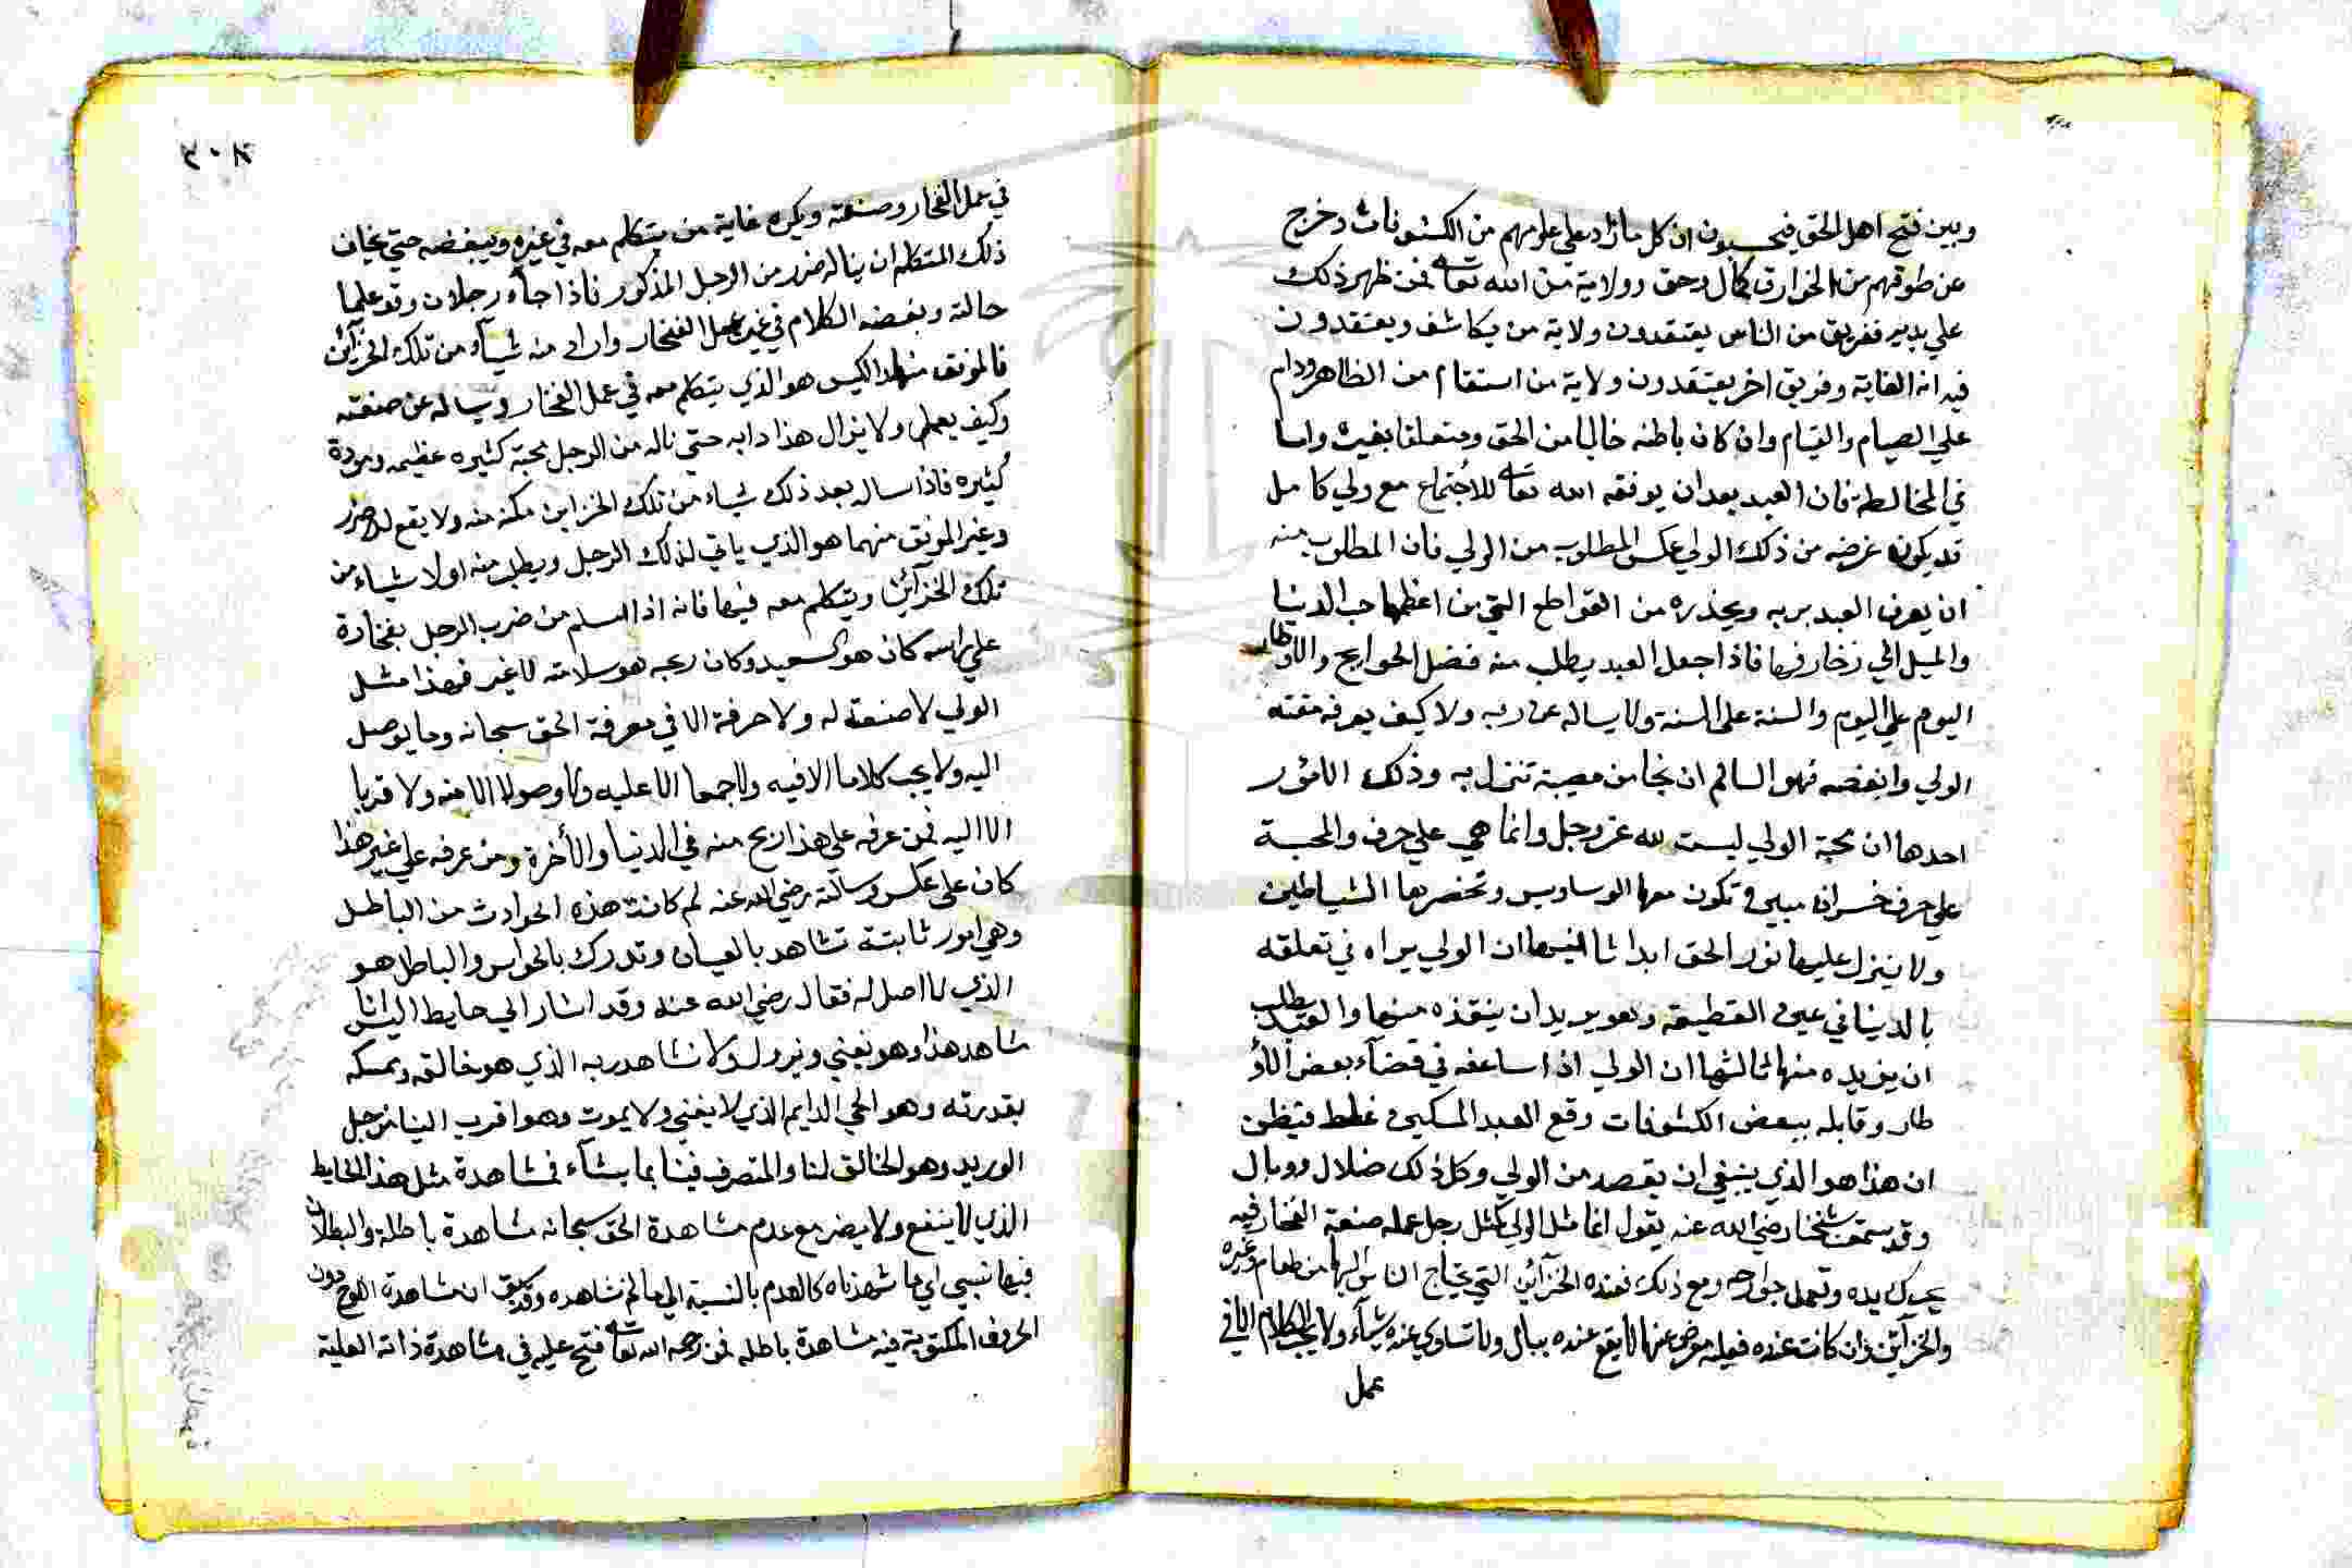 وبين فتح اهل الحق فيحسبون ان كل ما زاد على علومهم من الكشوفات وخرج
عن طوقهم من الخوارق كمال وحق وولاية من الله تعالى لمن ظهر ذلك
على يديه ففريق من الناس يعتقدون ولاية من يكاشف ويعتقدون
فيه انه الغاية وفريق اخر يعتقدون ولاية من استقام من الظاهر ودام
علي الصيام والقيام وان كان باطنه خاليا من الحق ومتعلقا بغيره واما
في المخالطة فان العبد بعد ان يوفقه الله تعالى للاجتماع مع ولي كامل
قد يكون غرضه من ذلك الولي عكس المطلوب من الولي فان المطلوب منه
ان يعرف العبد بربه ويحذره من القواطع التي من اعظمها حب الدنيا
والميل الي زخارفها فاذا جعل العبد يطلب منه فضل الحوايج والاوطار
اليوم علي اليوم والسنة على السنة ولا يساله عن ربه ولا كيف يعرفه مقته
الولي وابغضه فهو السالم ان نجا من مصيبة تنزل به وذلك لامور
احدها ان محبة الولي ليست لله عز وجل وانما هي علي حرف والمحبة
علي حرف خسران مبين وتكون معها الوساويس وتحضرها الشياطين
ولا ينزل عليها نور الحق ابدا ثانيها ان الولي يراه في تعلقه
بالدنيا في عين القطيعة وهو يريد ان ينقذه منها والعبد يطلب
ان يزيده منها ثالثها ان الولي اذا ساعفه في قضآء بعض الاو
طار وقابله ببعض الكشوفات وقع العبد المسكين غلط فيظن
ان هذا هو الذي ينبغي ان يقصد من الولي وكل ذلك ضلال ووبال
وقد سمعت شيخنا رضي الله عنه يقول انما مثل الولي كمثل رجل عمله صنعة الفخار فيه
يحرك يده وتعمل جوارحه ومع ذلك فعنده الخزآئن التي يحتاج الناس اليها من طعام وغيره
والخزآئن وان كانت عنده فعليه معرض عنها لا يقع عنده ببال ولا تساوي عنده شيآء ولا يحب الكلام الا في
عمل
٣٠٨
في عمل الفخار وصنعته ويكره غاية من يتكلم معه في غيره ويبغضه حتي يخاف
ذلك المتكلم ان يناله ضرر من الرجل المذكور فاذا جآء رجلان وقد علما
حالته وبغضه الكلام في غير عمل الفخار وارادا منه شيآء من تلك الخزآئن
فالموفق منهما الكيس هو الذي يتكلم معه في عمل الفخار ويساله عن صنعته
وكيف يعمل ولا يزال هذا دابه حتى ناله من الرجل محبة كثيره عظيمه ومودة
كثيره فاذا ساله بعد ذلك شياء من تلك الخزاين مكنه منه ولا يقع له ضرر
وغير الموفق منهما هو الذي ياتي لذلك الرجل ويطلب منه اولا شياء من
تلك الخزآئن ويتكلم معه فيها فانه اذا سلم من ضرب الرجل بفخارة
علي راسه كان هو السعيد وكان ربحه هو سلامته لا غير فهذا مثل
الولي لا صنعة له ولا حرفة الا في معرفة الحق سبحانه وما يوصل
اليه ولا يحب كلاما الا فيه ولا جمعا الا عليه ولا وصولا الا منه ولا قربا
الا اليه فمن عرفه علي هذا ربح منه في الدنيا والأخرة ومن عرفه علي غير هذا
كان على عكسه وسالته رضي الله عنه لم كانت هذه الحوادث من الباطل
وهي امور ثابتة تشاهد بالعيان وتدرك بالحواس والباطل هو
الذي لا اصل له فقال رضي الله عنه وقد اشار الي حايط اليس انا
نشاهد هذا وهو يفني ويزول ولا نشاهد ربه الذي هو خالقه وممسكه
بقدرته وهو الحي الدايم الذي لا يفني ولا يموت وهو اقرب الينا من حبل
الوريد وهو الخالق لنا والمتصرف فينا بما يشآء فمشاهدة مثل هذا الحايط
الذي لا ينفع ولا يضر مع عدم مشاهدة الحق سبحانه مشاهدة باطلة والبطلان
فيها نسبي اي ما شهدناه كالعدم بالنسبة الي ما لم نشاهده وقد سبق ان مشاهدة اللوح دون
الحروف المكتوبة فيه مشاهدة باطله فمن رحمه الله تعالى فتح عليه في مشاهدة ذاته العلية